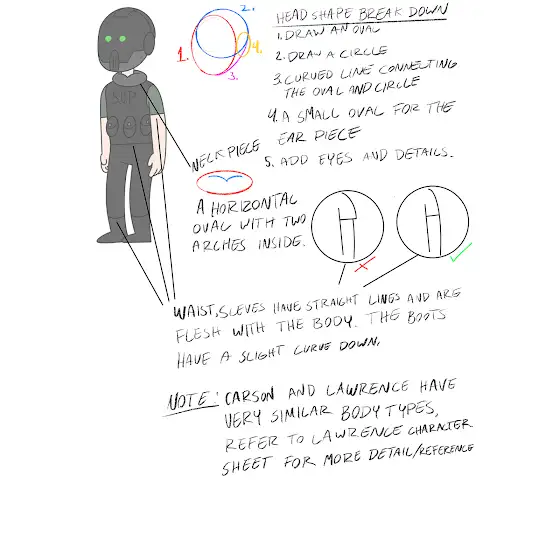 HEAD SHAPE BREAK DOWN
1. DRAW AN OVAL
2. DRAW A CIRCLE
3. CURVED LINE CONNECTING
THE OVAL AND CIRCLE
4. A SMALL OVAL FOR THE
EAR PIECE
5. ADD EYES AND DETAILS.
1.
2.
3.
4.
SUP
NECK PIECE
A HORIZONTAL
OVAL WITH TWO
ARCHES INSIDE.
WAIST, SLEVES HAVE STRAIGHT LINES AND ARE
FLESH WITH THE BODY. THE BOOTS
HAVE A SLIGHT CURVE DOWN.
NOTE: CARSON AND LAWRENCE HAVE
VERY SIMILAR BODY TYPES,
REFER TO LAWRENCE CHARACTER
SHEET FOR MORE DETAIL/REFERENCE